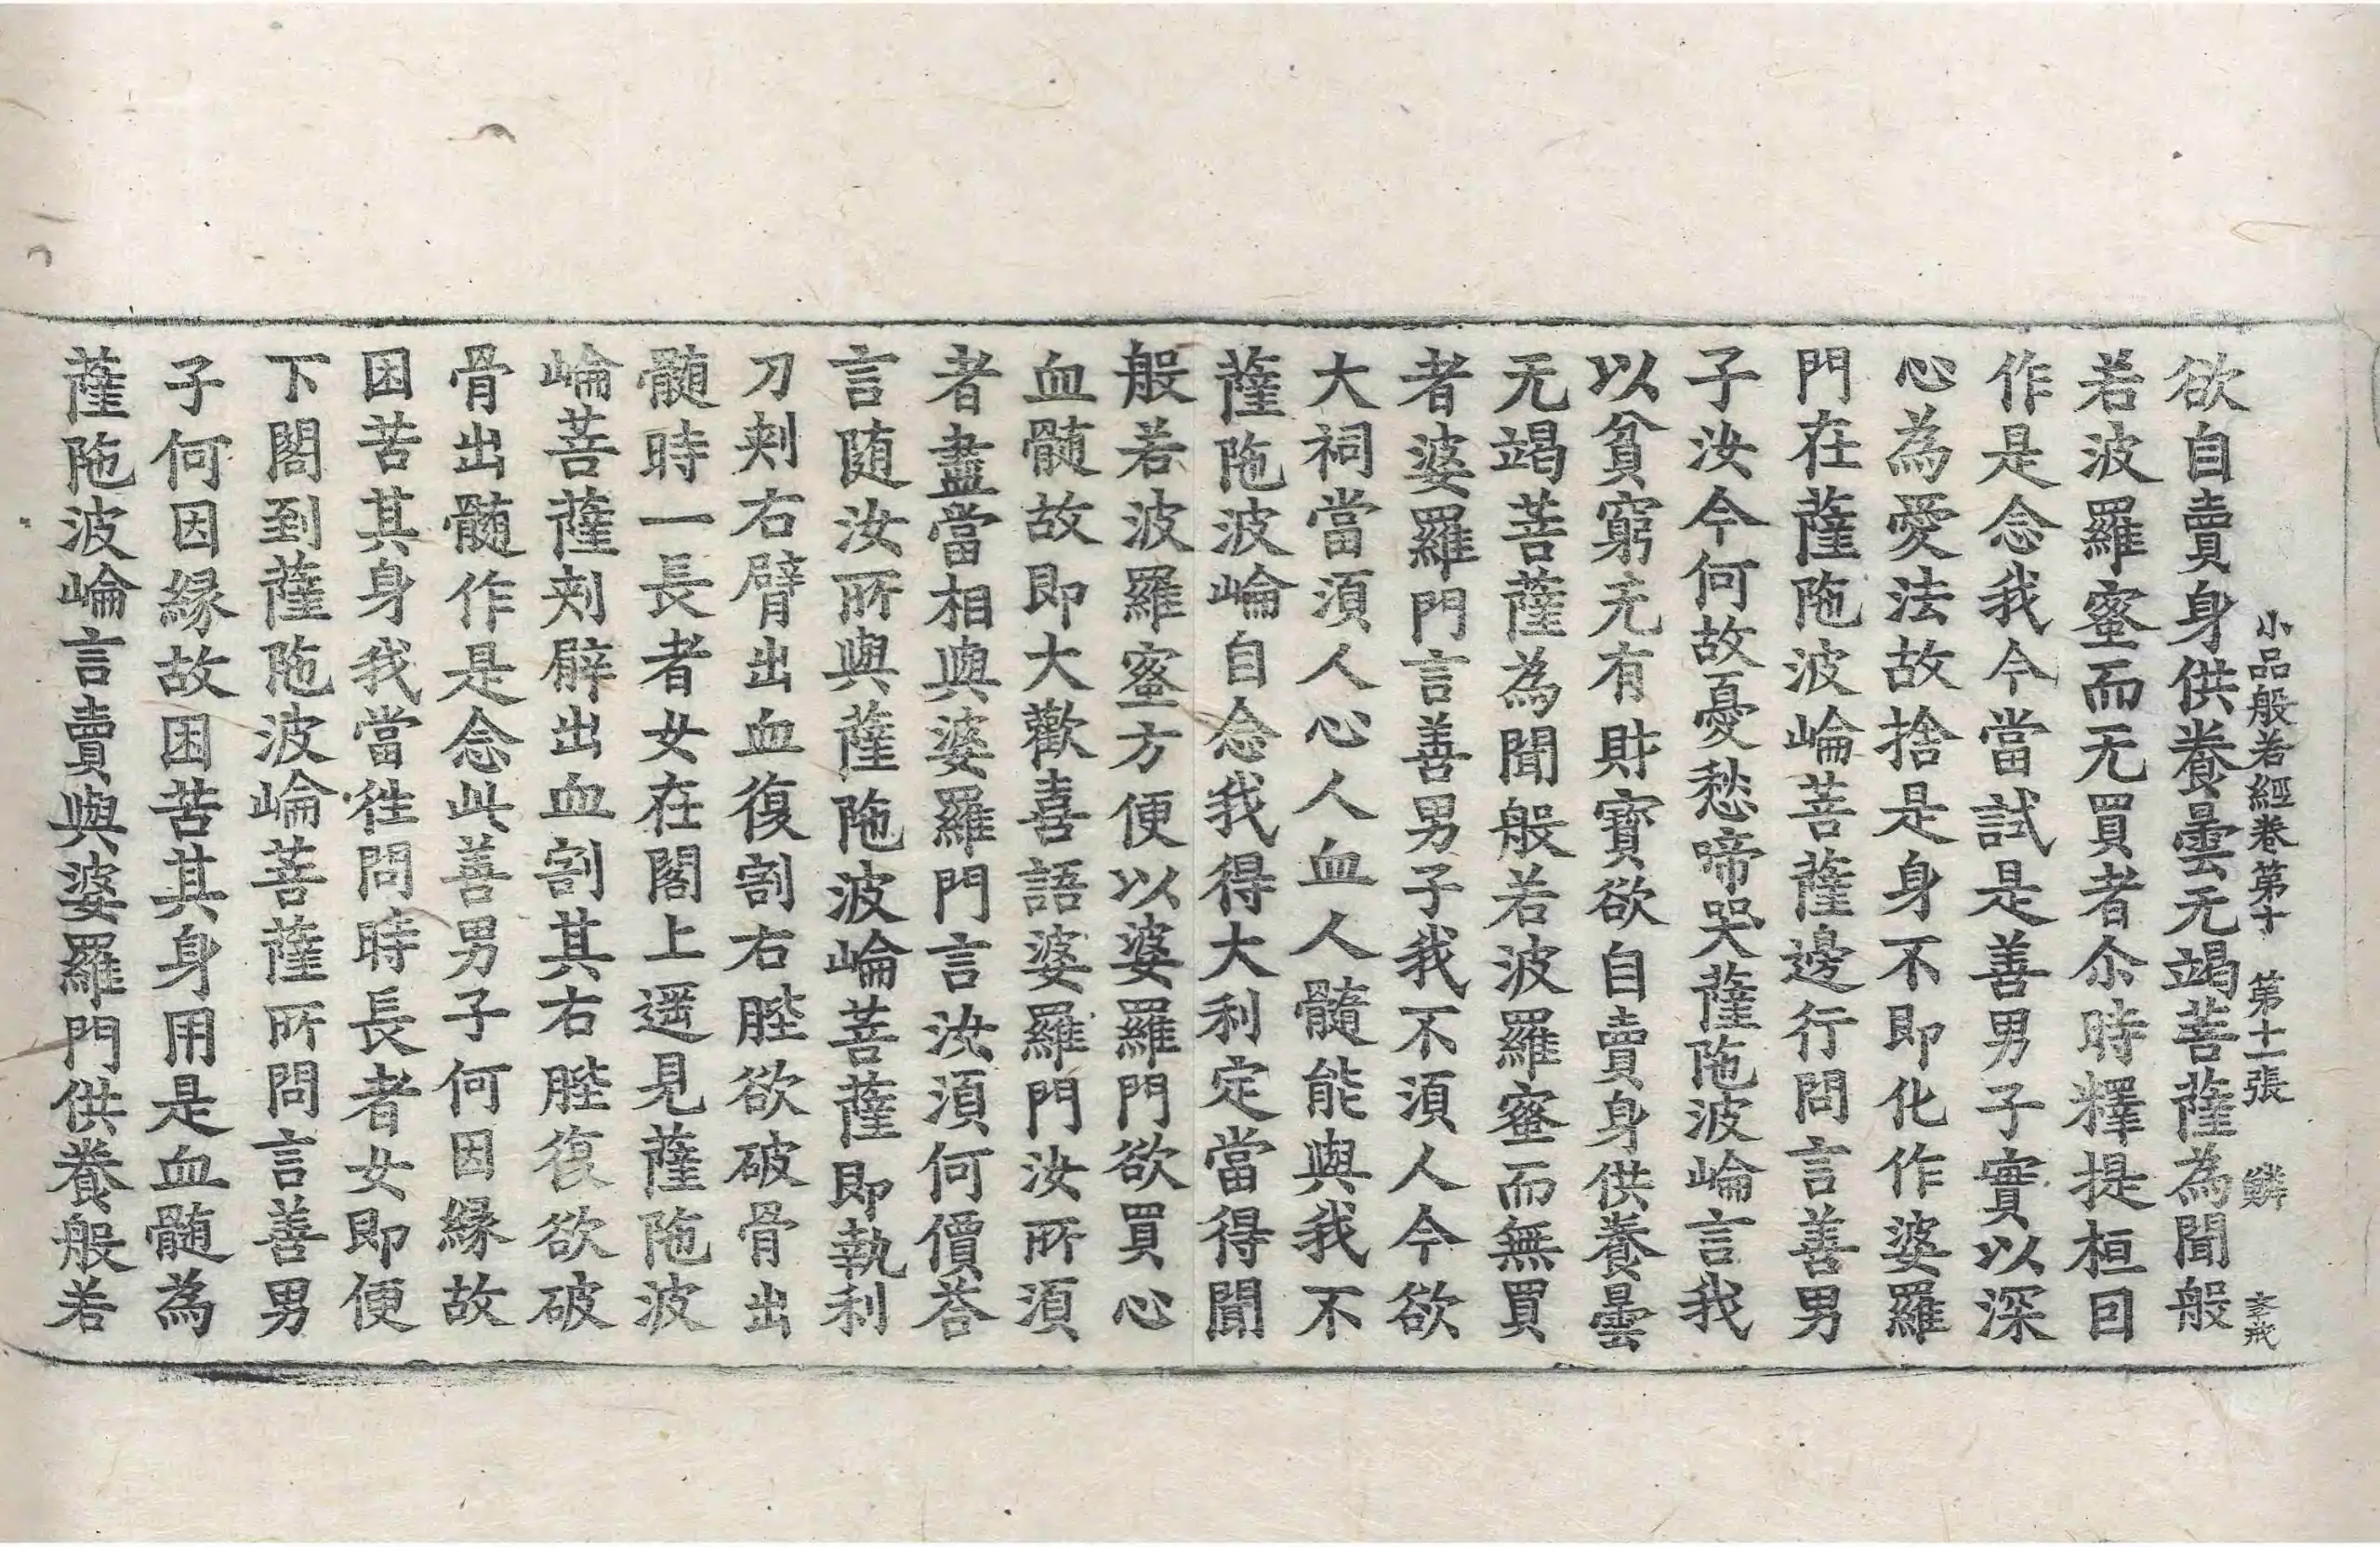 小品般若經卷第十　第十一張　鱗
欲自賣身供養曇无竭菩薩為聞般
若波羅蜜而无買者尒時釋提桓因
作是念我今當試是善男子實以深
心為愛法故捨是身不即化作婆羅
門在薩陁波崘菩薩邊行問言善男
子汝今何故憂愁啼哭薩陁波崘言我
以貧窮无有財寶欲自賣身供養曇
无竭菩薩為聞般若波羅蜜而無買
者婆羅門言善男子我不湏人今欲
大祠當湏人心人血人髓能與我不
薩陁波崘自念我得大利定當得聞
般若波羅蜜方便以婆羅門欲買心
血髓故即大歡喜語婆羅門汝所湏
者盡當相與婆羅門言汝湏何價荅
言随汝所與薩陁波崘菩薩即執利
刀刾右臂出血復割右䏶欲破骨出
髓時一長者女在閣上遥見薩陁波
崘菩薩刾臂出血割其右䏶復欲破
骨出髓作是念此善男子何因縁故
困苦其身我當往問時長者女即便
下閣到薩陁波崘菩薩所問言善男
子何因縁故困苦其身用是血髓為
薩陁波崘言賣與婆羅門供養般若